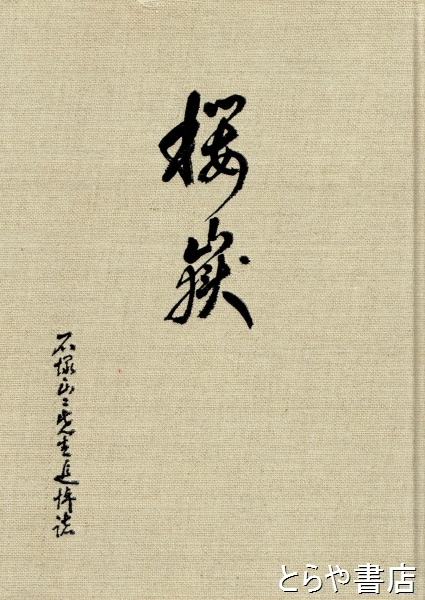 桜嶽
石塚正二先生追悼誌
とらや書店